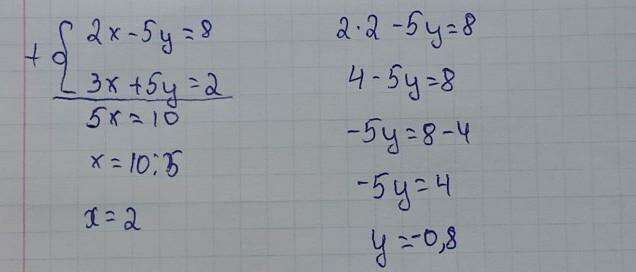 + { 2x-5y=8
3x+5y=2
5x=10
x=10:5
x=2
2·2-5y=8
4-5y=8
-5y=8-4
-5y=4
y=-0,8